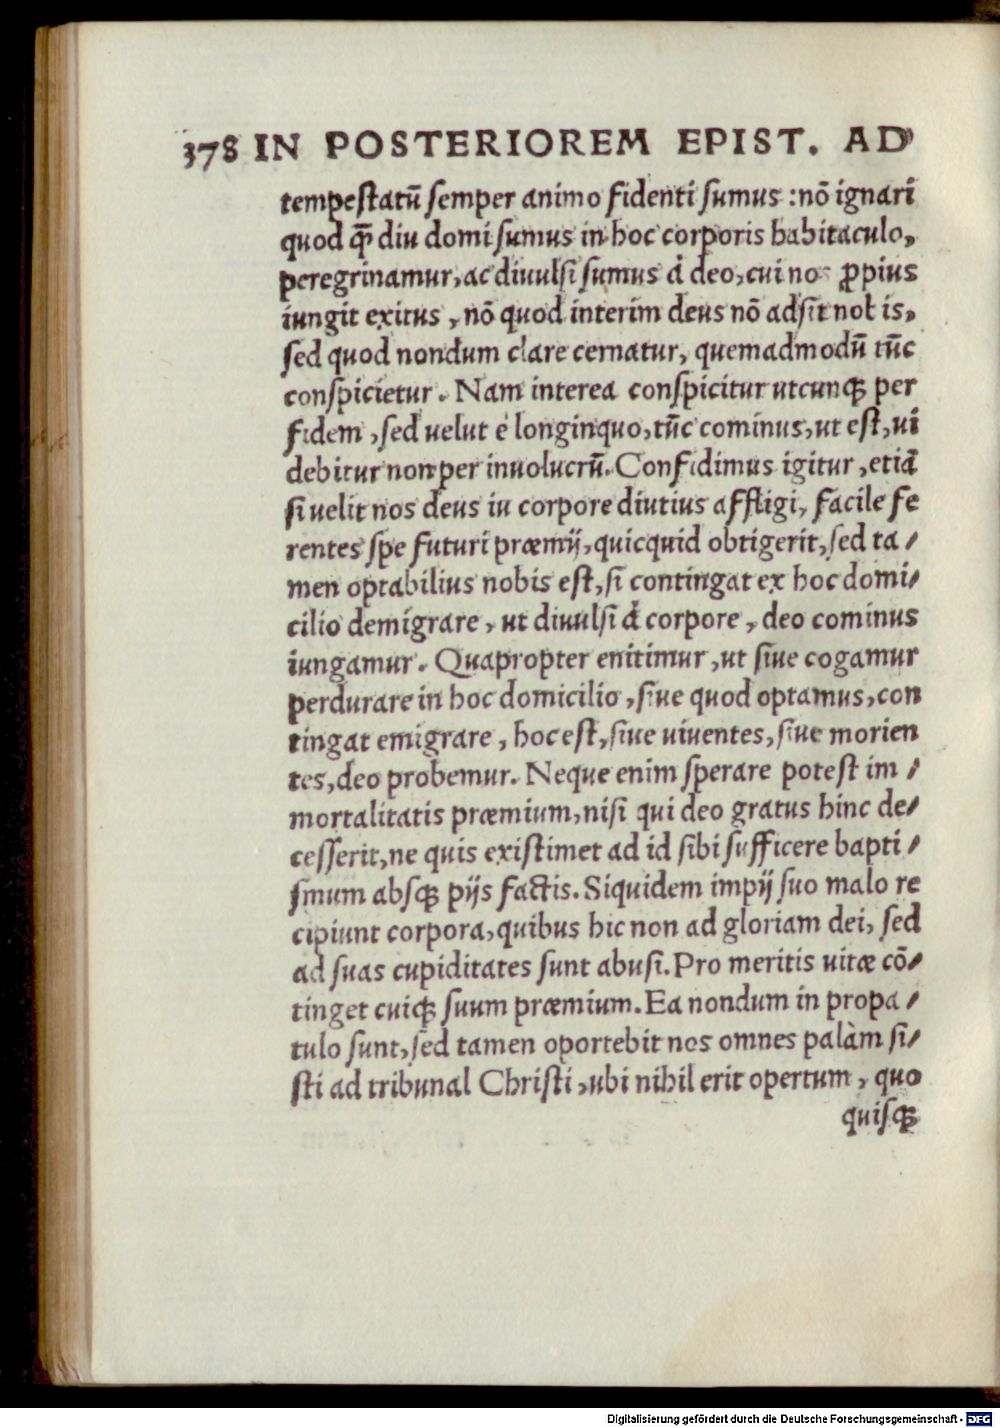 378 IN POSTERIOREM EPIST. AD
tempeſtatū ſemper animo fidenti ſumus : nō ignari
quod q̄ diu domi ſumus in hoc corporis habitaculo,
peregrinamur, ac diuulſi ſumus à deo, cui nos ꝓpius
iungit exitus, nō quod interim deus nō adſit nobis,
ſed quod nondum clare cernatur, quemadmodū tūc
conſpicietur. Nam interea conſpicitur utcunqꝫ per
fidem, ſed uelut è longinquo, tūc cominus, ut eſt, ui
debitur non per inuolucrū. Confidimus igitur, etiā
ſi uelit nos deus iu corpore diutius affligi, facile fe
rentes ſpe futuri præmij, quicquid obtigerit, ſed ta⸗
men optabilius nobis eſt, ſi contingat ex hoc domi⸗
cilio demigrare, ut diuulſi à corpore, deo cominus
iungamur. Quapropter enitimur, ut ſiue cogamur
perdurare in hoc domicilio, ſiue quod optamus, con
tingat emigrare, hoc eſt, ſiue uiuentes, ſiue morien
tes, deo probemur. Neque enim ſperare poteſt im⸗
mortalitatis præmium, niſi qui deo gratus hinc de⸗
ceſſerit, ne quis exiſtimet ad id ſibi ſufficere bapti⸗
ſmum abſqꝫ pijs factis. Siquidem impij ſuo malo re
cipiunt corpora, quibus hic non ad gloriam dei, ſed
ad ſuas cupiditates ſunt abuſi. Pro meritis uitæ cō⸗
tinget cuiqꝫ ſuum præmium. Ea nondum in propa⸗
tulo ſunt, ſed tamen oportebit nos omnes palàm ſi⸗
ſti ad tribunal Chriſti, ubi nihil erit opertum, quo
quiſqꝫ
Digitalisierung gefördert durch die Deutsche Forschungsgemeinschaft - DFG